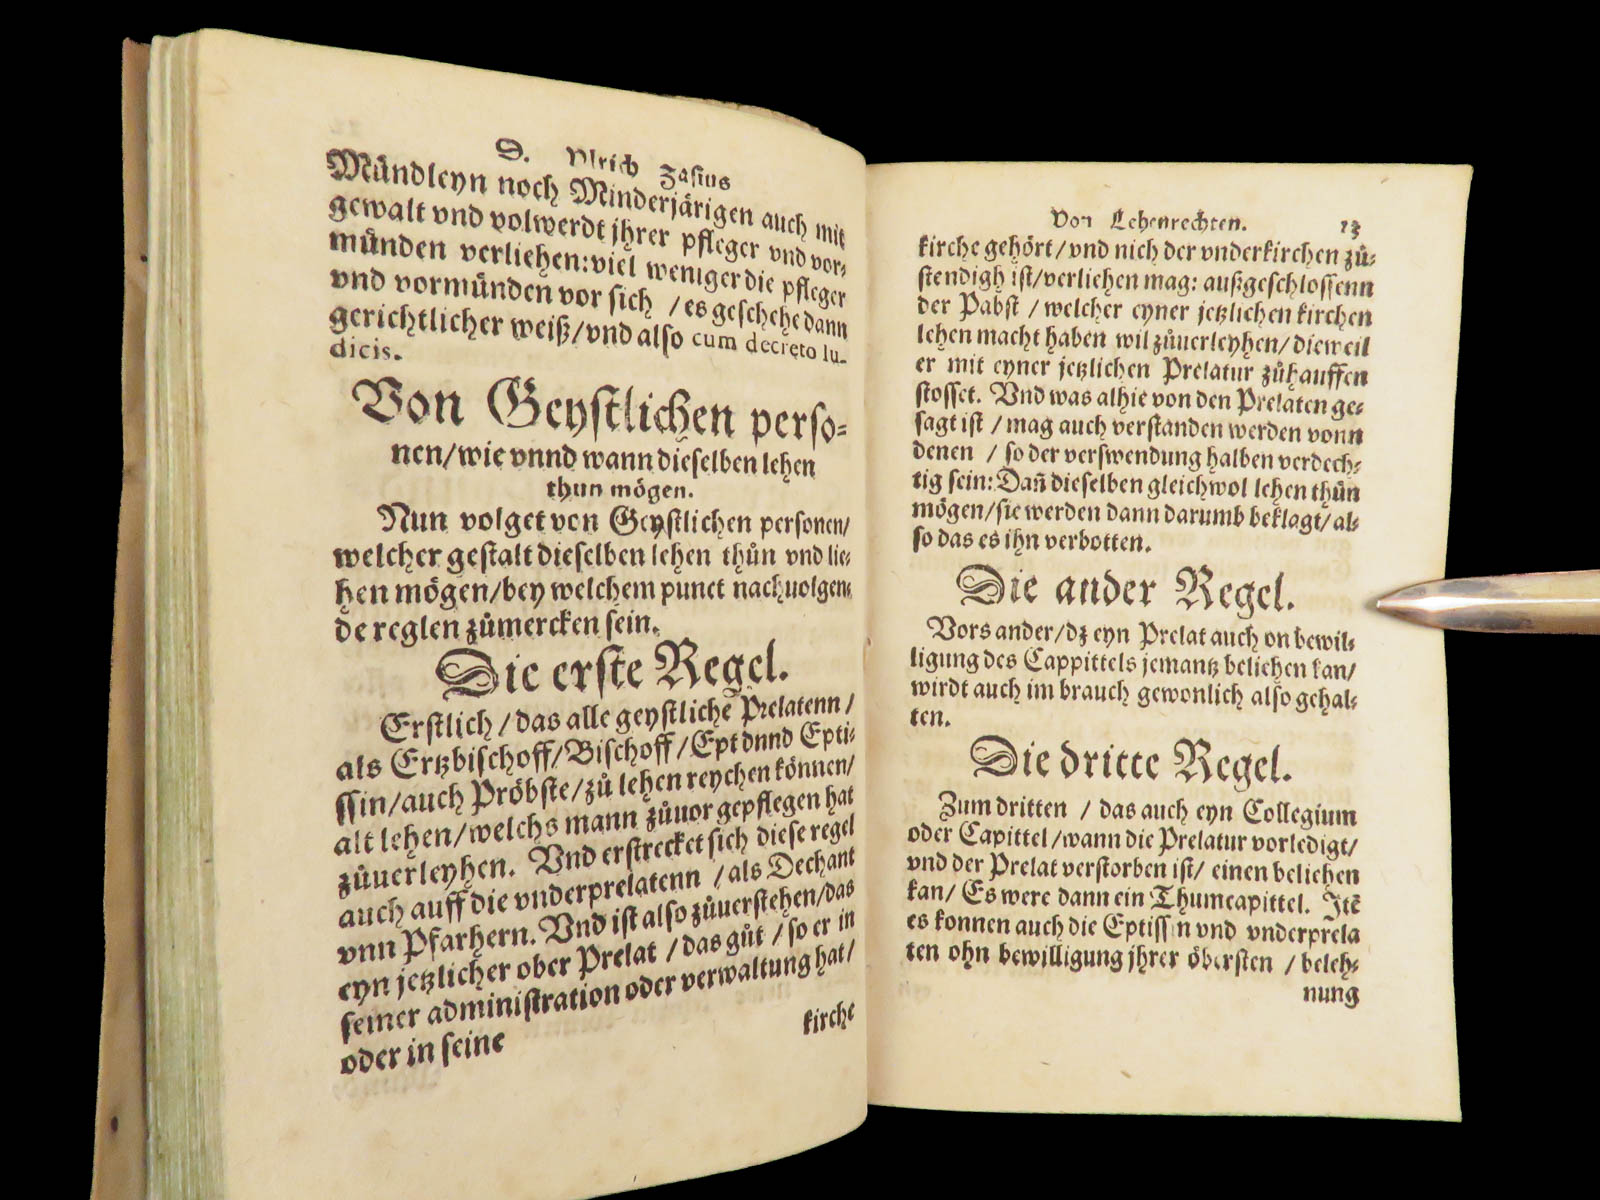 D. Vlrich Zasius
Mündleyn noch Minderjärigen auch mit
gewalt vnd volwerdt jhrer pfleger vnd vor-
münden verliehen: viel weniger die pfleger
vnd vormünden vor sich / es geschehe dann
gerichtlicher weiß/ vnd also cum decreto Iu-
dicis.
Von Geystlichen perso-
nen/ wie vnnd wann dieselben lehen
thun mögen.
Nun volget von Geystlichen personen/
welcher gestalt dieselben lehen thůn vnd lie-
hen mögen/ bey welchem punct nachuolgen-
de reglen zůmercken sein.
Die erste Regel.
Erstlich / das alle geystliche Prelatenn /
als Ertzbischoff/ Bischoff/ Ept vnnd Epti-
ssin/ auch Pröbste/ zů lehen reychen können/
alt lehen/ welchs mann zůuor gepflegen hat
zůuerleyhen. Vnd erstrecket sich diese regel
auch auff die vnderprelatenn / als Dechant
vnn Pfarhern. Vnd ist also zůuerstehen/ das
eyn jetzlicher ober Prelat / das gůt / so er in
seiner administration oder verwaltung hat/
oder in seine
kirche
Von Lehenrechten. 13
kirche gehört/ vnd nich der vnderkirchen zů-
stendigh ist/ verliehen mag: außgeschlossenn
der Pabst / welcher eyner jetzlichen kirchen
lehen macht haben wil zůuerleyhen/ dieweil
er mit eyner jetzlichen Prelatur zůhauffen
stosset. Vnd was alhie von den Prelaten ge-
sagt ist / mag auch verstanden werden vonn
denen / so der verswendung halben verdech-
tig sein: Dañ dieselben gleichwol lehen thůn
mögen/ sie werden dann darumb beklagt/ al-
so das es ihn verbotten.
Die ander Regel.
Vors ander/ dz eyn Prelat auch on bewil-
ligung des Cappittels jemantz beliehen kan/
wirdt auch im brauch gewonlich also gehal-
ten.
Die dritte Regel.
Zum dritten / das auch eyn Collegium
oder Capittel/ wann die Prelatur vorledigt/
vnd der Prelat verstorben ist/ einen beliehen
kan/ Es were dann ein Thumcapittel. Itē
es konnen auch die Eptissin vnd vnderprela
ten ohn bewilligung jhrer öbersten / beleh-
nung